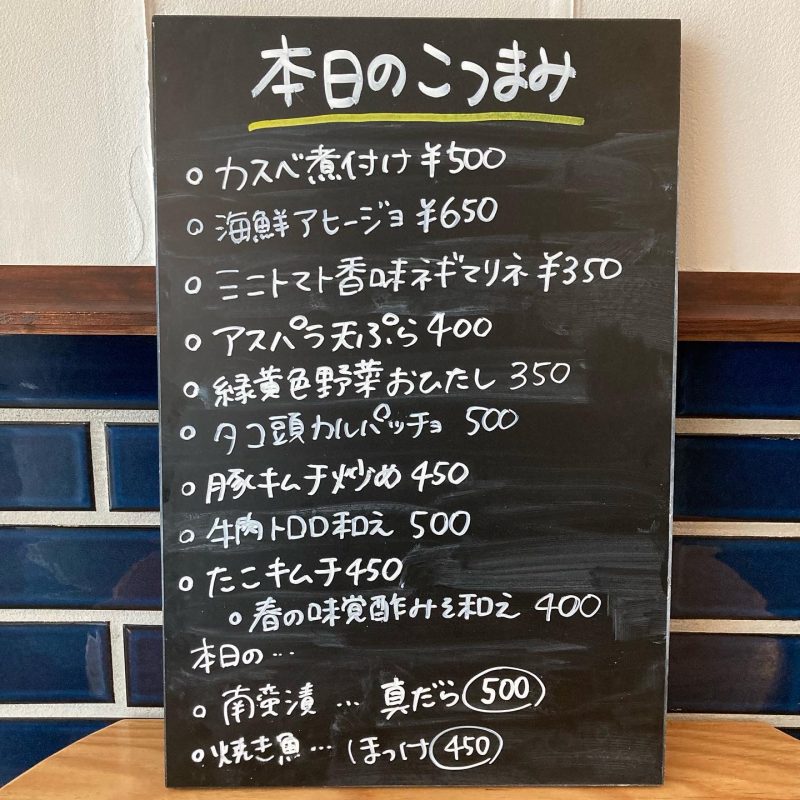 本日のこつまみ
○ カスベ煮付け ¥500
○ 海鮮アヒージョ ¥650
○ ミニトマト香味ネギマリネ ¥350
○ アスパラ天ぷら 400
○ 緑黄色野菜おひたし 350
○ タコ頭カルパッチョ 500
○ 豚キムチ炒め 450
○ 牛肉トロロ和え 500
○ たこキムチ 450
○ 春の味覚酢みそ和え 400
本日の…
○ 南蛮漬 … 真だら 500
○ 焼き魚… ほっけ 450